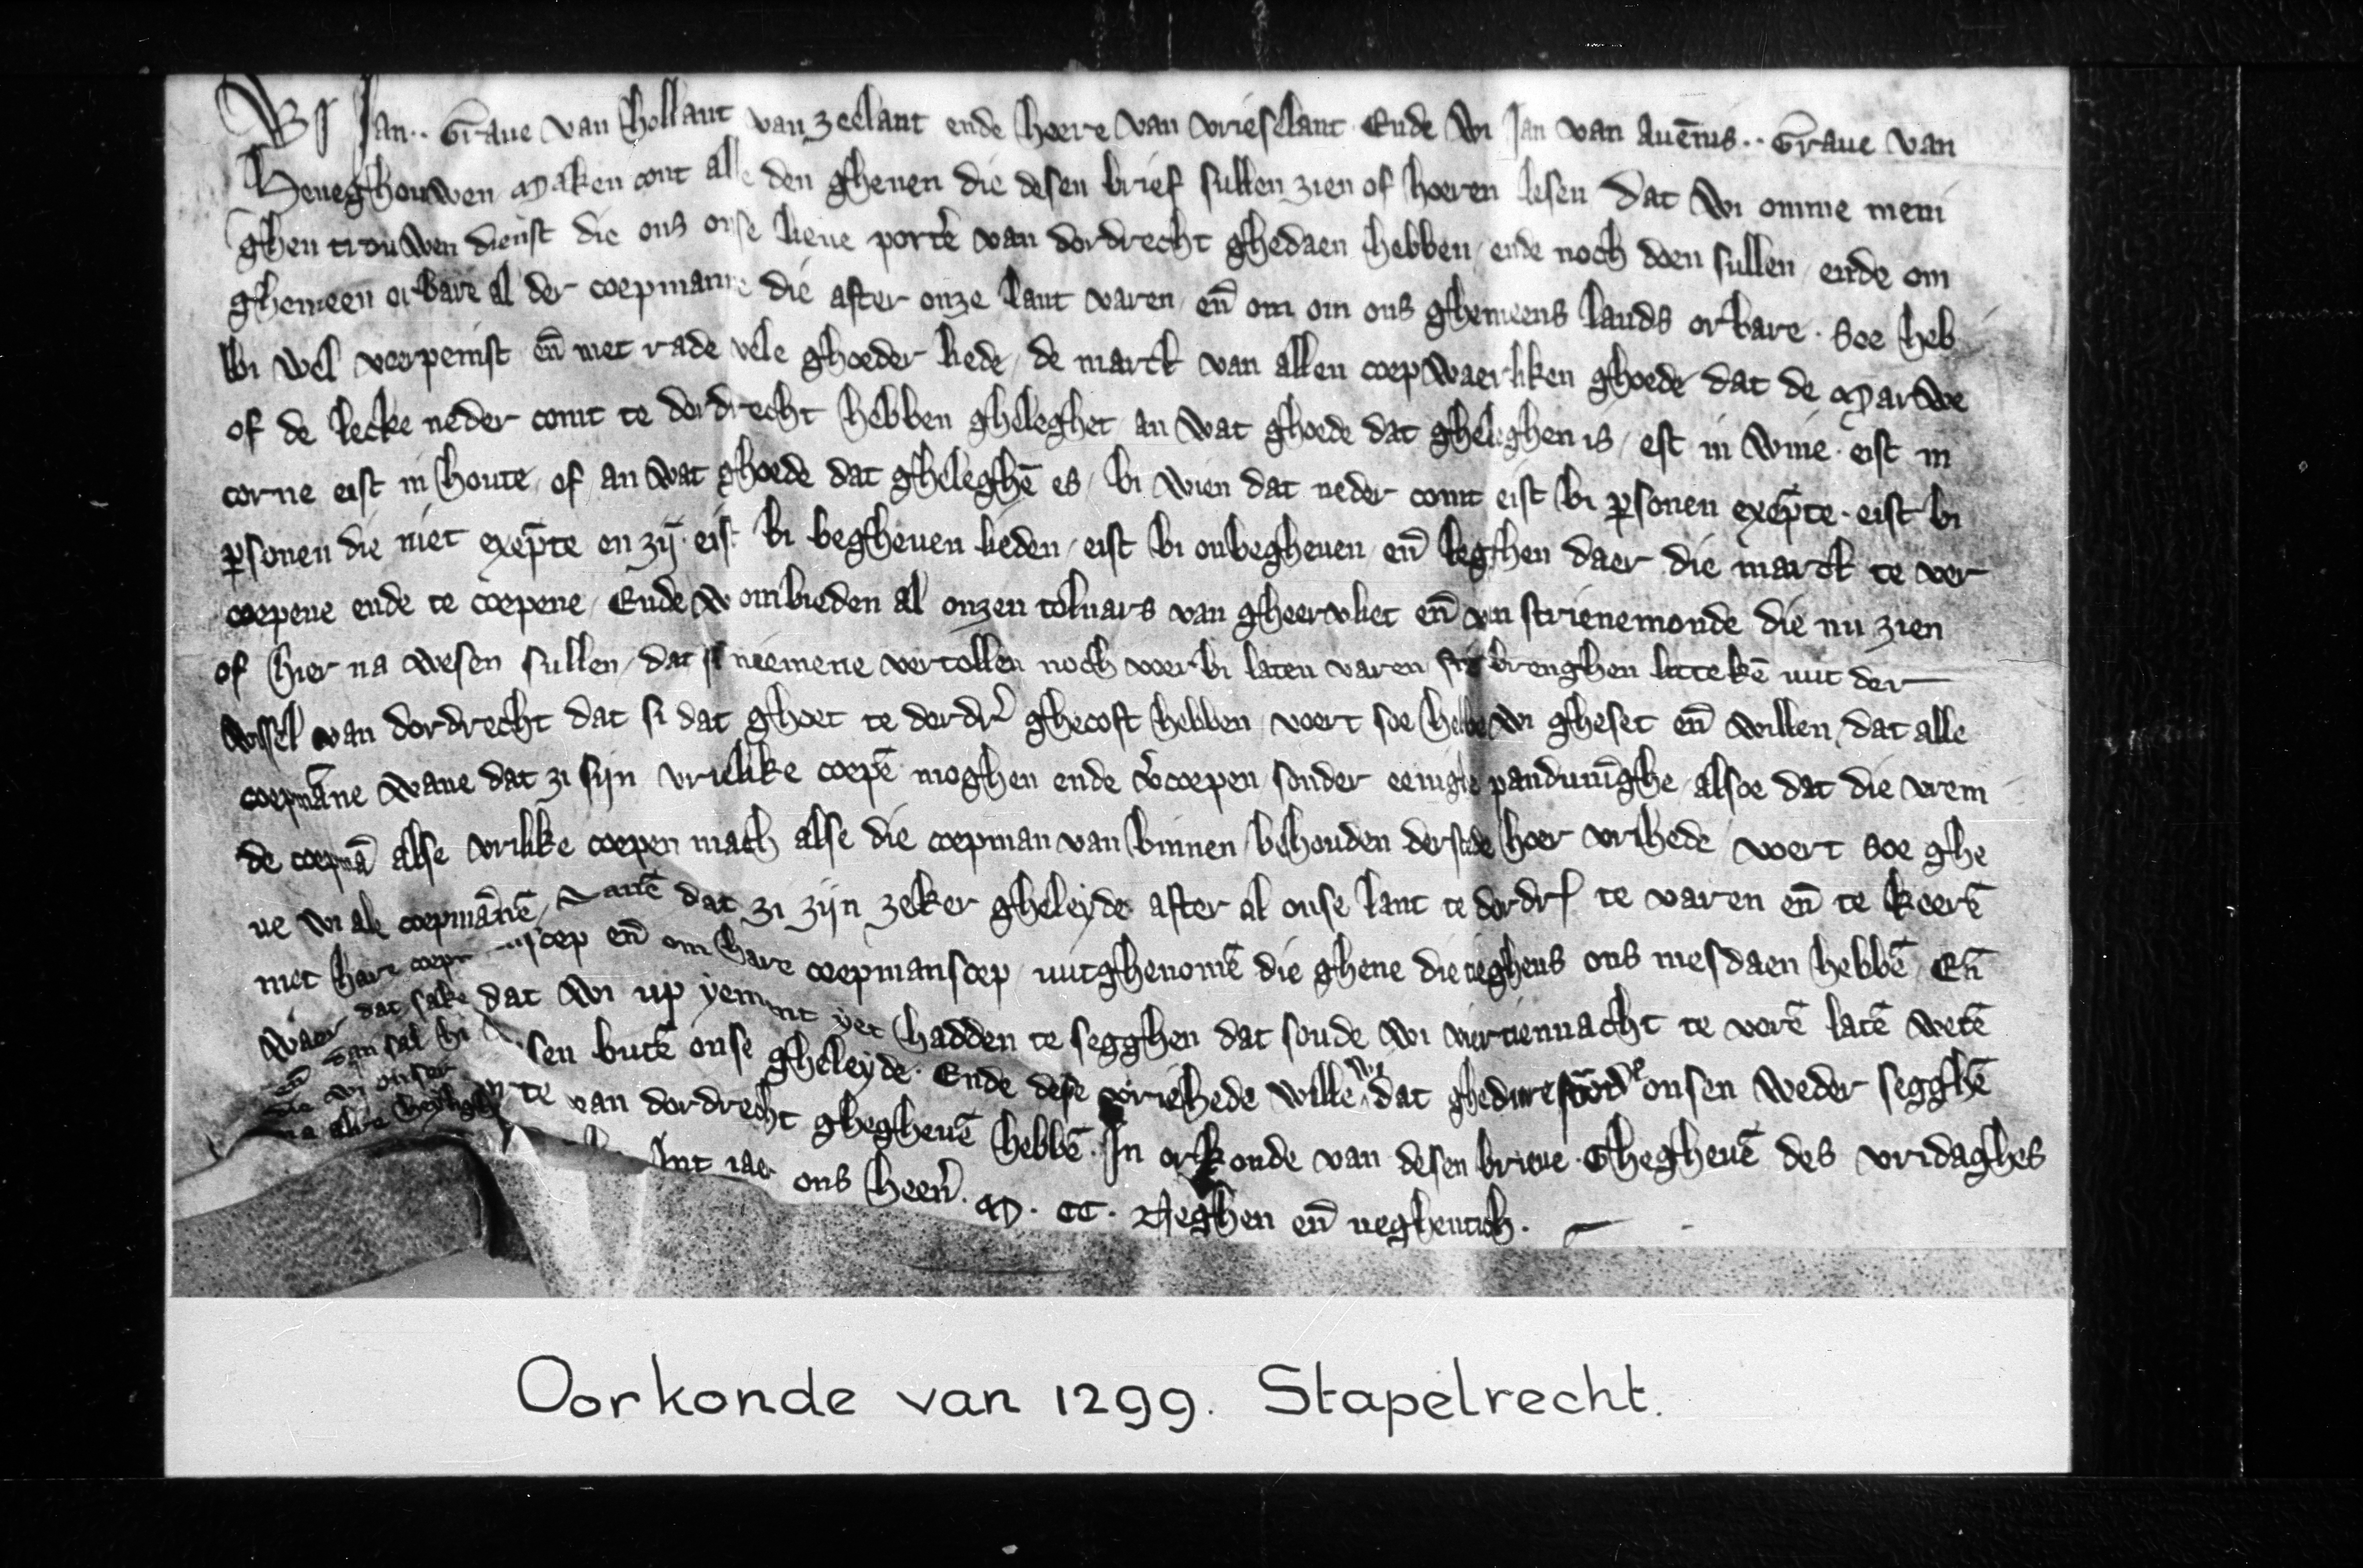 Wi Jan.. Graue van Hollant van zeelant ende heere van vrieselant. Ende wi Jan van Auēnis.. Graue van
Heneghouwen maken cont alle den ghenen die desen brief sullen zien of horen lesen dat wi omme meni
ghen trouwen dienst die ons onse lieue port'e van dordrecht ghedaen hebben / ende noch doen sullen / ende om
ghemeen orbare al der coepmanne die after onze lant varen / eñ om om ons ghemeens lands orbare. Soe heb
bi wel veerpeinst eñ met rade vele ghoeder liede / de marct van allen coepwaerliken ghoede dat de Marwe
of de lecke neder comt te dordrecht hebben gheleghet / an wat ghoede dat gheleghen is / est in wine. eist in
corne eist in houte / of / an wat ghoede dat gheleghē es / bi wien dat neder comt eist bi ꝑsonen exēpte. eist bi
ꝑsonen die niet exēpte en zij. eist bi begheuen lieden / eist bi onbegheuen / eñ legghen daer die marct te ver
coepene ende te coepene / Ende wi ombieden al onzen tolnars van gheervliet eñ van strienemonde die nu zien
of hier na wesen sullen / dat si neemene vertollen noch voerbi laten varen brenghen litteken uut der
wissel van dordrecht dat si dat ghoet te dordr' ghecoft hebben / voert soe hebbe wi gheset eñ willen / dat alle
coepmāne wane dat zi sijn vrielike coepē moghen ende v'coepen / sonder eenighe panduinghe / alsoe dat die vrem
de coepmā alse vrilike coepen mach alse die coepman van binnen / behouden der stede hoer vrihede / voert soe ghe
ue wi alle coepmānē / wanē dat zi zijn zeker gheleyde after al onse lant te dordr' te varen eñ te keerē
met hare scep eñ om hare coepmanscep / uutghenomē die ghene die ieghens ons mesdaen hebbē / Eñ
waer dat sake dat wi up yement yet hadden te segghen dat soude wi viertiennacht te vorē latē wetē
eñ dan sal hi sen butē onse gheleyde. Ende dese vriehede wille wi dat ghedure onsen weder segghē
die wi onser te van dordrecht ghegheuē hebbē. In orkonde van desen brieue. Ghegheuē des vridaghes
na Int iaer ons heerē. M. CC. Neghen eñ neghentich.
Oorkonde van 1299. Stapelrecht.